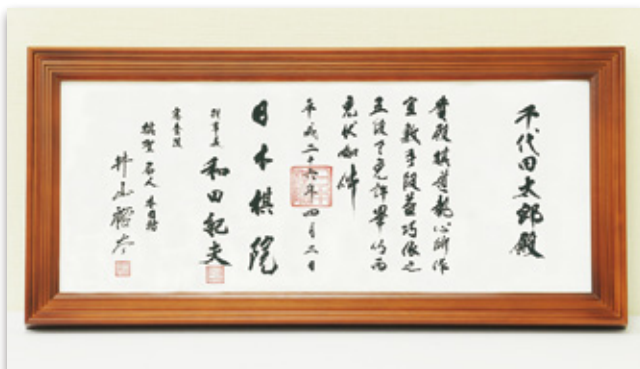 千代田太郎殿
貴殿棋道執心所作
宜敷手段益巧依之
五段令免許畢仍而
免状如件
平成二十六年四月三日
日本棋院
理事長 和田紀夫
審査役
棋聖 名人 本因坊
井山裕太